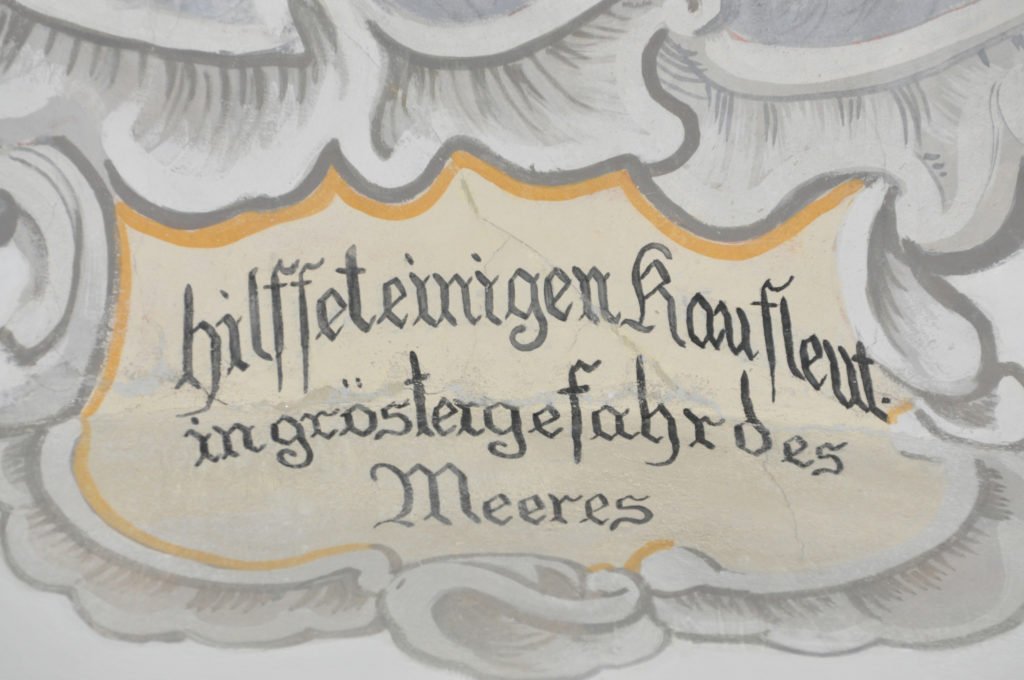 hilffet einigen Kaufleut.
in gröster gefahr des
Meeres